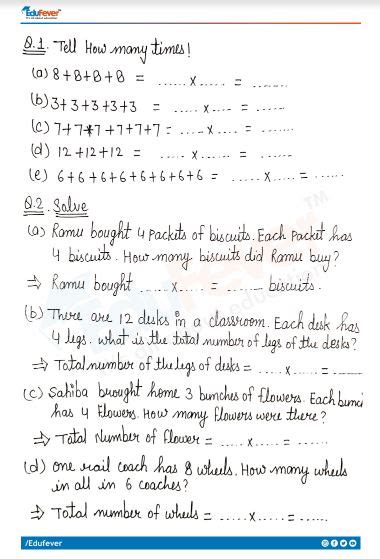 EduFever
Q.1. Tell How many times!
(a) 8+8+8+8 = ......x..... = .......
(b) 3+3+3+3+3 = ......x..... = .......
(c) 7+7+7+7+7+7 = .....x..... = .......
(d) 12+12+12 = ......x..... = .......
(e) 6+6+6+6+6+6+6+6 = ......x..... = ......
Q.2. Solve
(a) Ramu bought 4 Packets of biscuits. Each Packet has
4 biscuits. How many biscuits did Ramu buy?
⇒ Ramu bought .....x..... = ....... biscuits.
(b) There are 12 desks in a classroom. Each desk has
4 legs. what is the total number of legs of the desks?
⇒ Total number of the legs of desks = .....x..... = ......
(c) Sahiba brought home 3 bunches of flowers. Each bunch
has 4 flowers. How many flowers were there?
⇒ Total Number of flower = .....x..... = ......
(d) One rail coach has 8 wheels. How many wheels
in all in 6 coaches?
⇒ Total number of wheels = .....x..... = ......
/Edufever